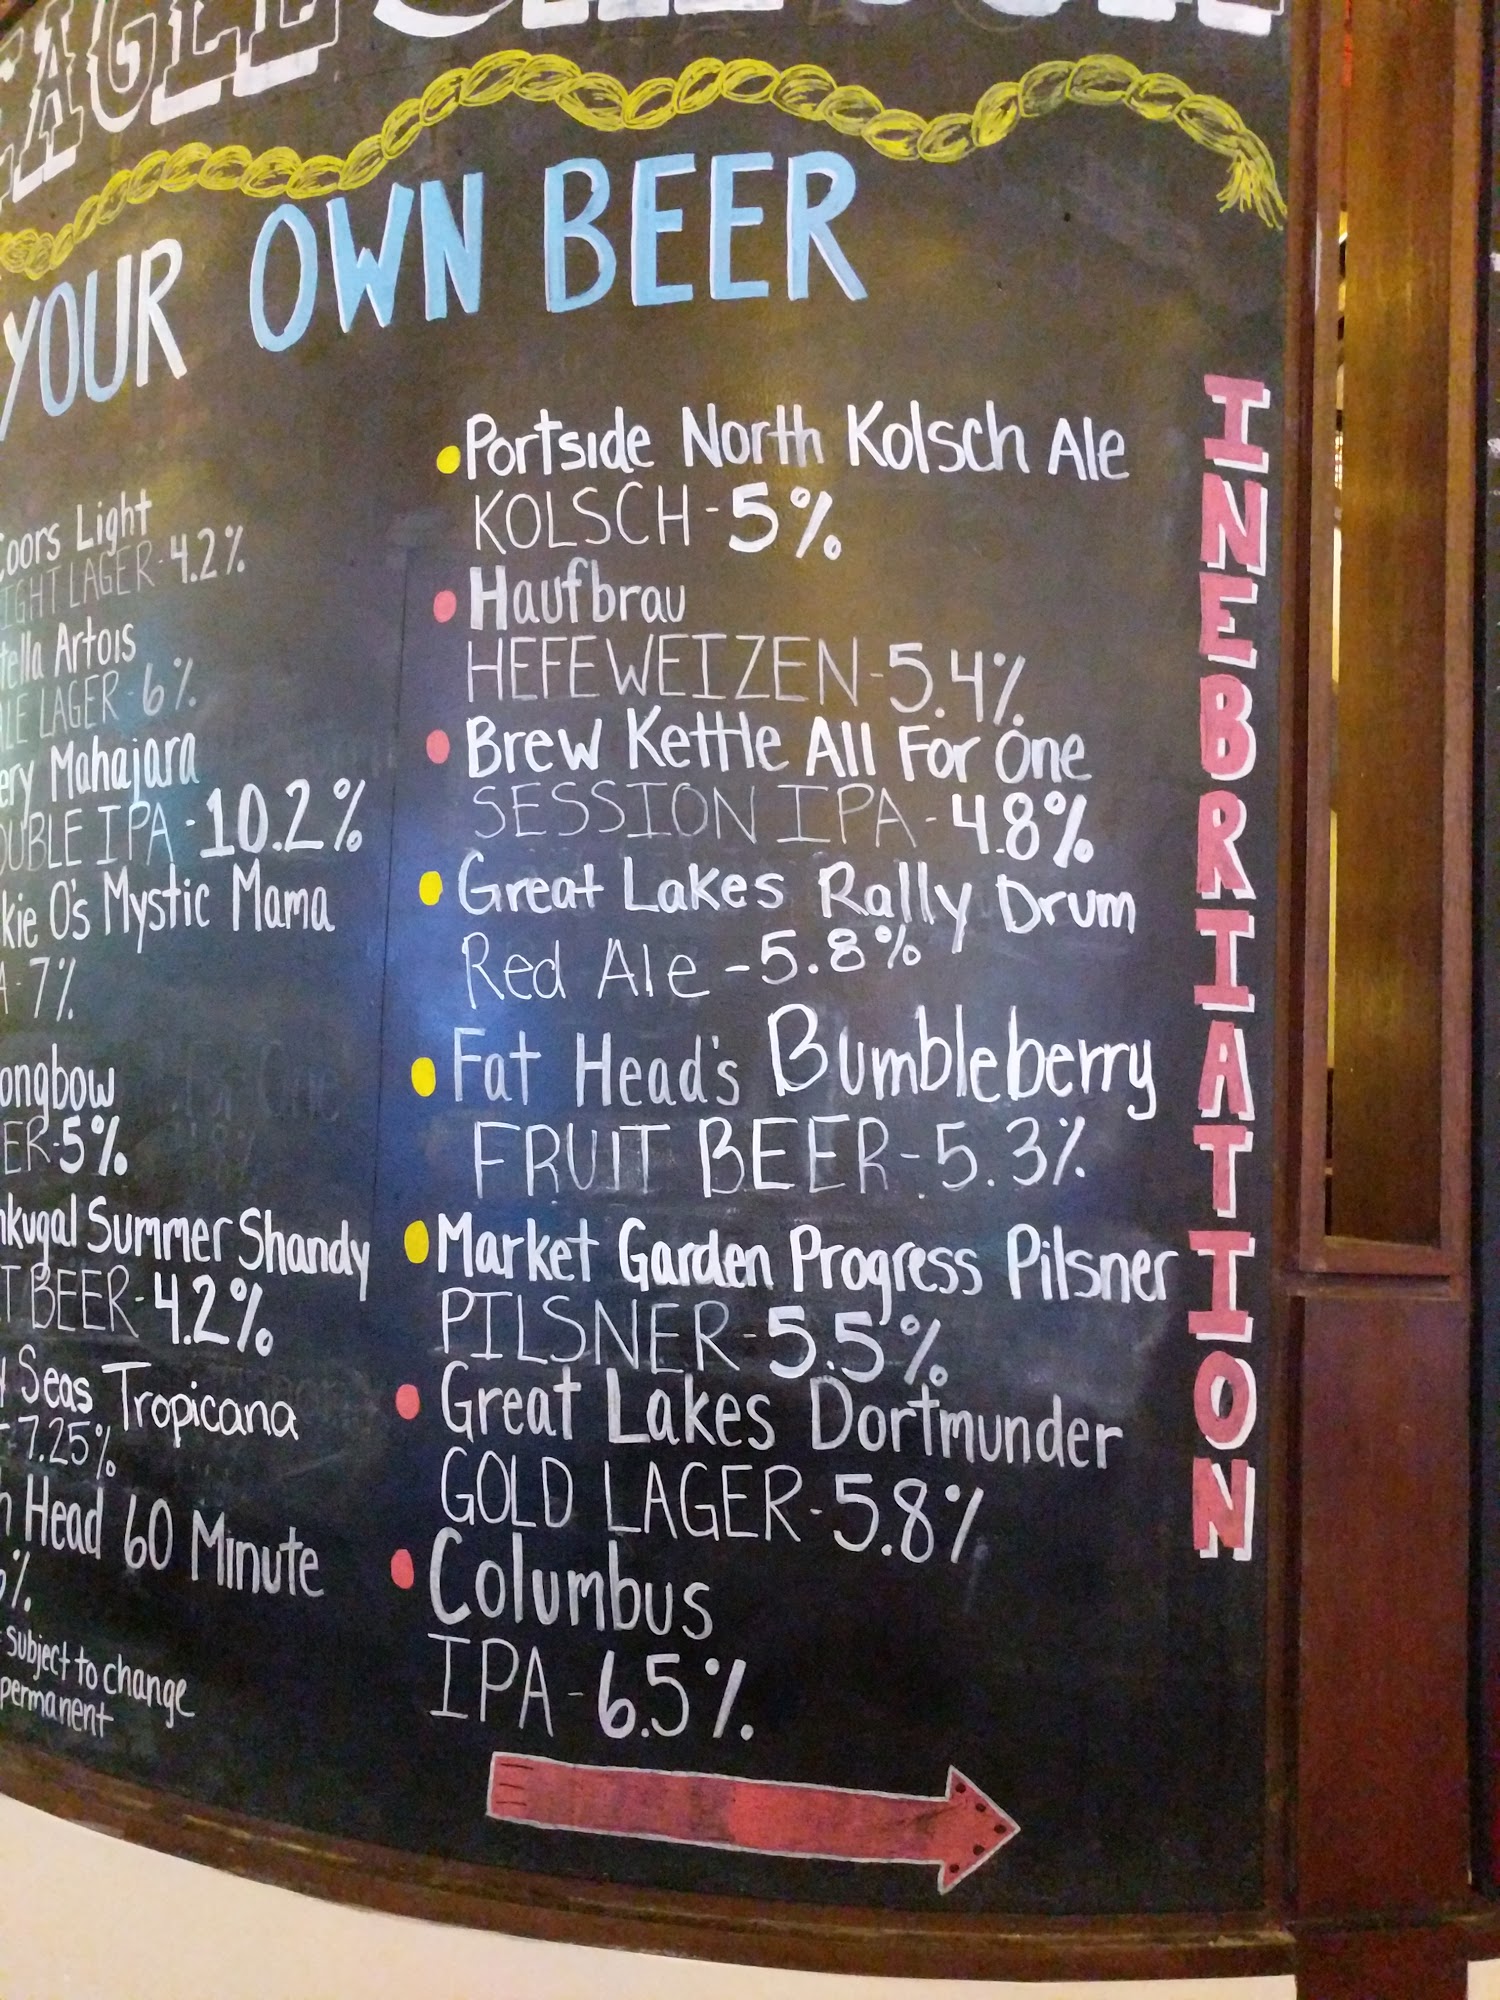 EAGLE
YOUR OWN BEER
Coors Light
LIGHT LAGER - 4.2%
Stella Artois
PALE LAGER - 6%
Mahajara
DOUBLE IPA - 10.2%
O's Mystic Mama
7%
ongbow
5%
Summer Shandy
BEER - 4.2%
Seas Tropicana
7.25%
Head 60 Minute
subject to change
permanent
Portside North Kolsch Ale
KOLSCH - 5%
Haufbrau
HEFEWEIZEN - 5.4%
Brew Kettle All For One
SESSION IPA - 4.8%
Great Lakes Rally Drum
Red Ale - 5.8%
Fat Head's Bumbleberry
FRUIT BEER - 5.3%
Market Garden Progress Pilsner
PILSNER - 5.5%
Great Lakes Dortmunder
GOLD LAGER - 5.8%
Columbus
IPA - 6.5%
INEBRIATION